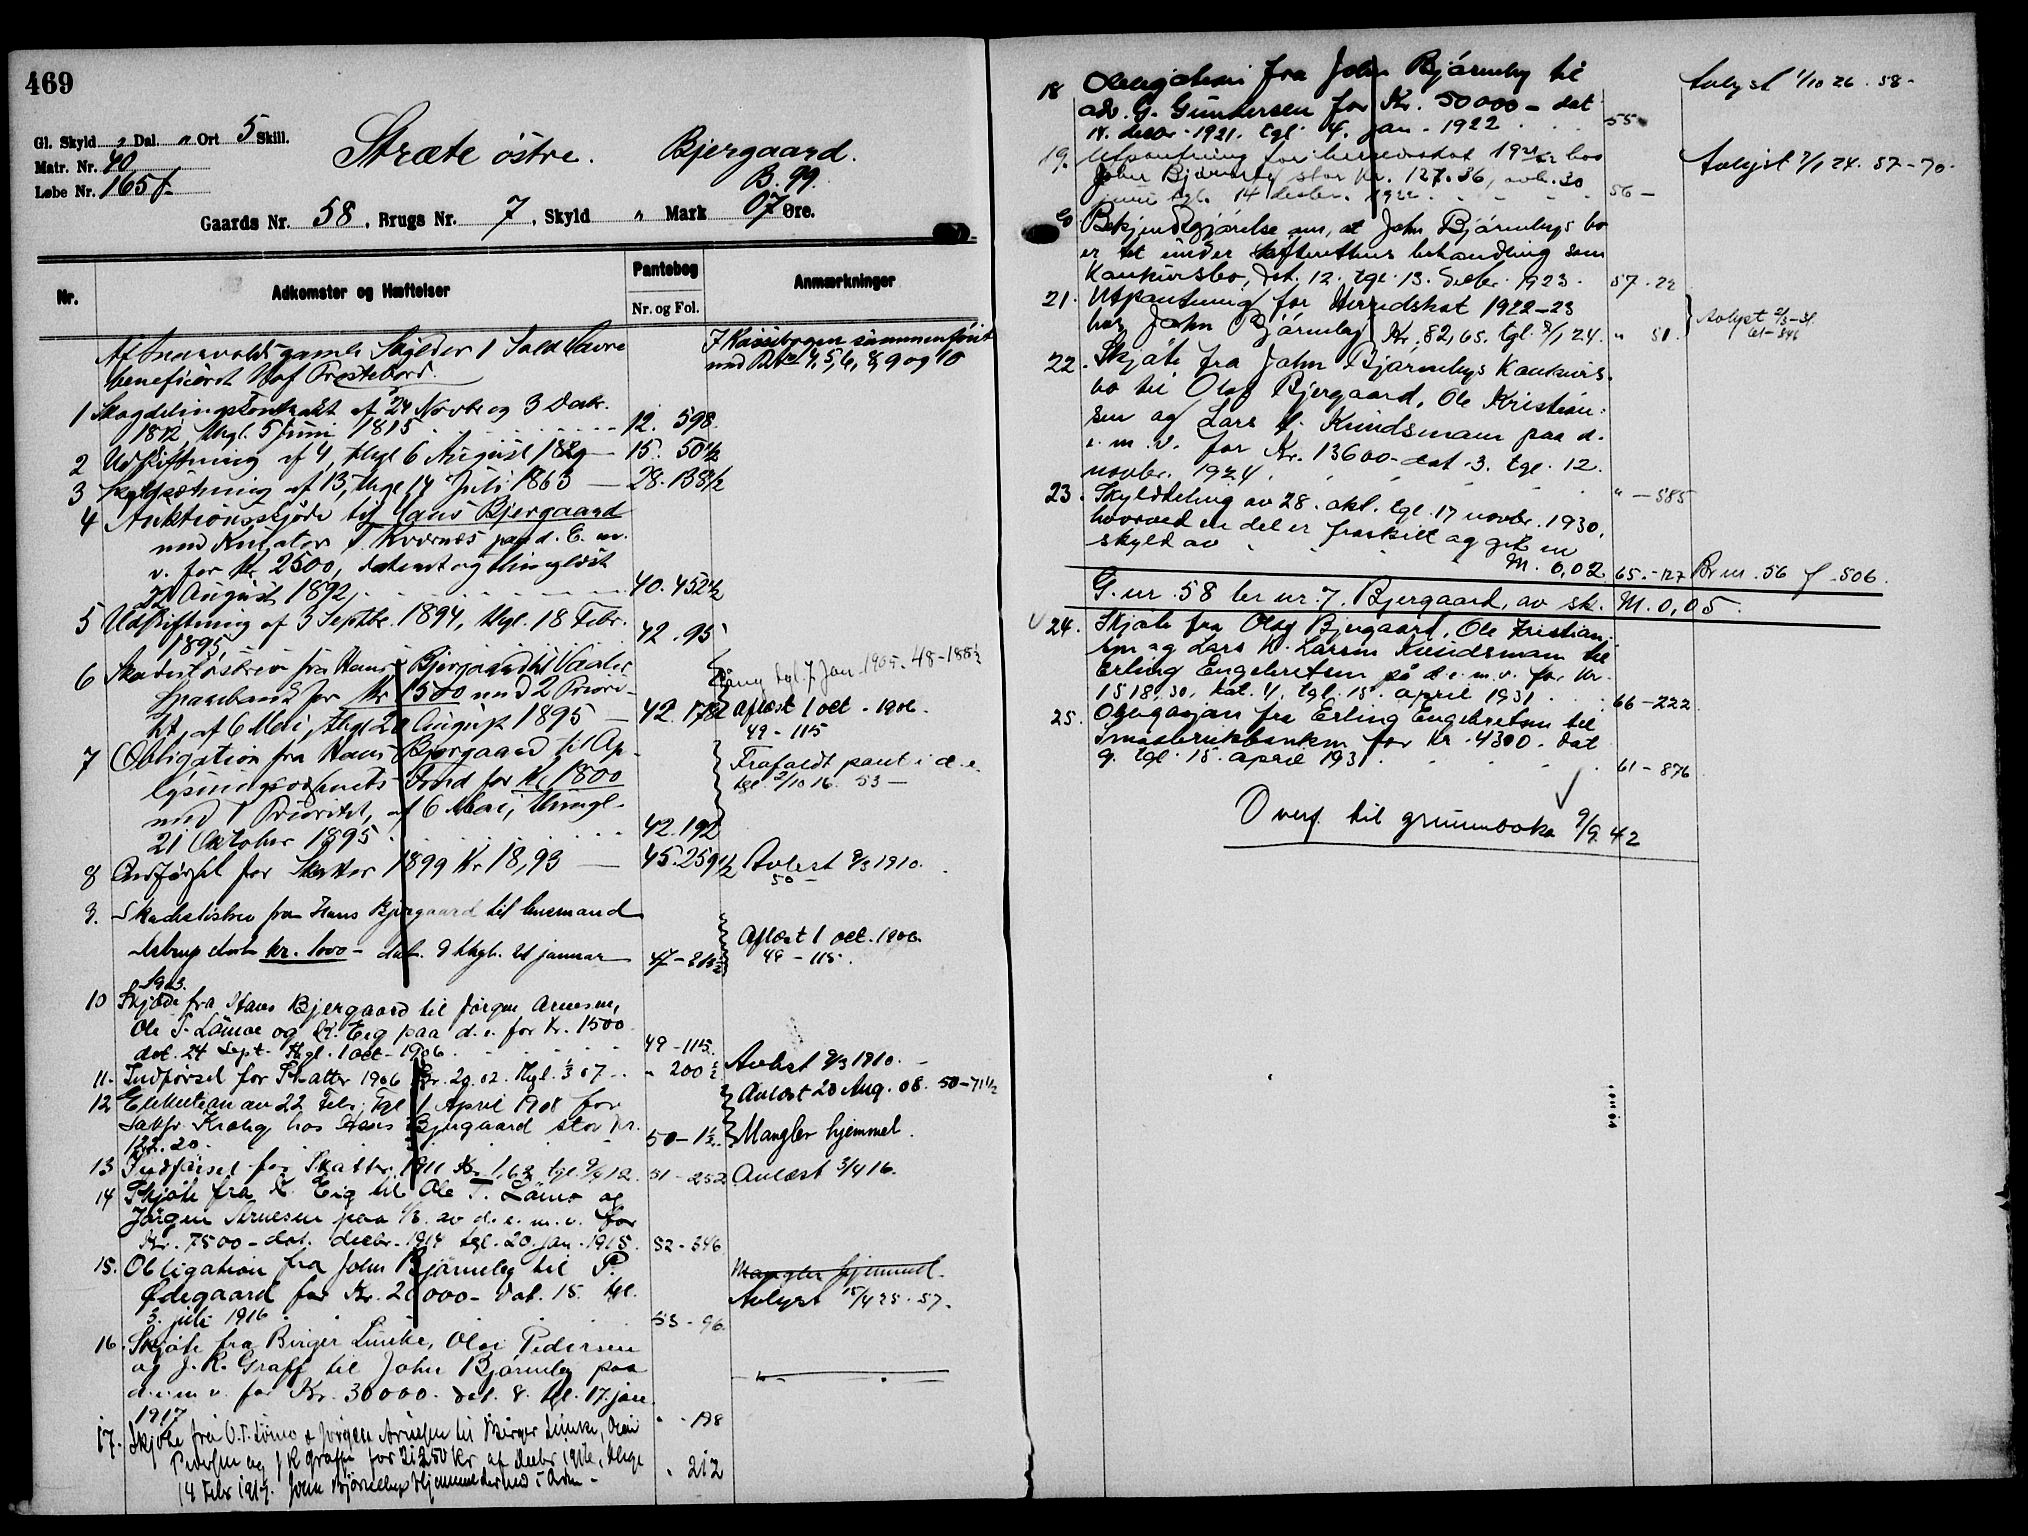 469
Gl. Skyld „ Dal. „ Ort 5 Skill.
Matr. Nr. 40
Løbe Nr. 165f
Stræte østre. Bjergaard.
B. 99.
Gaards Nr. 58, Brugs Nr. 7, Skyld „ Mark 07 Øre.
Nr. Adkomster og Hæftelser Pantebog Anmærkninger
Nr. og Fol.
gamle
beneficeret Præstebord.
1 Skogdelingskontrakt af 24 Novbr og 3 Decbr.
1812, thgl. 5 Juni 1815 12. 598.
2 Udskiftning af 4, thgl 6 August 15. 50½
3 Skyldsætning af 13, thgl 14 Juli 1863 28. 138½
4 Auktionsskjøde til Hans Bjergaard
med Kurator T. Kværnes paa d. E. m.
v. for Kr 2500, dateret og thinglæst
22 August 1892 40. 452½
5 Udskiftning af 3 Septbr. 1894, thgl. 18 Febr.
1895 42. 95
6 Skadesløsbrev fra Hans Bjergaard til Vaaler
Sparebank for Kr 1500 med 2 Priori-
tet, af 6 Mai, thgl 20 August 1895 42. 178
thgl. 7 Jan 1905. 48-188½
Aflæst 1 oct. 1906.
49-115
7 Obligation fra Hans Bjergaard til Op-
lysningsvæsenets Fond for Kr 1800
med 1 Prioritet, af 6 Mai, thingl.
21 Oktober 1895 42. 192
Frafaldt pant i d. e.
tgl. 2/10 16. 53 –
8 Indførsel for Skatter 1899 Kr 18,93 45. 259½ Avlæst 9/3 1910.
50 –
9. Skadesløsbrev fra Hans Bjergaard til lensmand
Astrup kr. 1000 – dat. 9 thgl. 21 januar
1903.
Aflæst 1 oct. 1906.
49-115.
10 Skjøde fra Hans Bjergaard til Jørgen Arnesen,
Ole T. Lömoe og K. Eig paa d. e. for Kr. 1500
dat. 24 Sept. thgl. 1 oct – 1906. 49-115.
11. Indførsel for Skatter 1906 Kr. 20.02. thgl. 1/3 07 „ 200½ Avlæst 9/3 1910.
12 Exekution av 22 Febr. Tgl 1 April 1908 for
Krohg hos Hans Bjergaard stor Kr.
122.20. 50-1½.
Avlæst 20 Aug. 08. 50-71½
Mangler hjemmel.
13 Indførsel for Skatter. 1911 Kr 1.62 tgl. 9/4 12. 51-252 Avlæst 3/4 16.
14 Skjøte fra K. Eig til Ole T. Lömo og
Jørgen Arnesen paa 1/3. av d. e. m. v. for
Kr. 7500 – dat. decbr. 1914 tgl. 20. jan. 1915. 52-346
15. Obligation fra John Bjørneby til P.
Ødegaard for Kr. 20000 – Dat. 15. tgl.
3. juli 1916 53-96.
Mangler hjemmel.
Avlyst 15/4 25. 57.
16. Skjøte fra Birger Lunke, Olai Pedersen
og J. K. Graff til John Bjørneby paa
d. e. m. v. for Kr. 30000. dat. 8. tgl. 17. jan.
1917 „ -198
17. Skjøte fra O.T. Lömo & Jørgen Arnesen til Birger Lunke, Olai
Pedersen og J K Graff for 31250 Kr af decbr 1916, thlgt
14 Febr 1917. John Bjørnebys Hjemmel dermed i Orden – „ 212
18 Obligation fra John Bjørneby til
adv. G. Gundersen for Kr. 50000 – dat
14. decbr. 1921. tgl. 4. jan. 1922 55
Avlyst 1/10 26. 58-
19. Utpantning for herredsskat hos
John Bjørneby stor Kr. 127.36, avh. 30
juni tgl. 14 decbr. 1922 56 –
Avlyst 7/1 24. 57-70.
20 Bekjendtgjørelse om, at John Bjørnebys bo
er tat under skifterettens behandling som
Konkursbo, Dat. 12. tgl. 13. decbr. 1923. 57-22
21. Utpantning for Herredskat 1922-23
hos John Bjørneby Kr. 82,65. tgl. 8/1 24. „ 51.
61-546
22. Skjøte fra John Bjørnebys Konkurs-
bo til Olaf Bjergaard, Ole Kristian-
sen og Lars K. Kundsmann paa d.
e. m. v. for Kr. 13600 – dat. 3. tgl. 12.
novbr. 1924. „ -585
23. Skylddeling av 28. okt. tgl. 17 novbr. 1930,
hvorved en del er fraskilt og git en
skyld av M. 0,02 65.-127 Br. nr. 56 f -506.
G. nr. 58 br. nr. 7. Bjergaard, av sk. M. 0,05.
24. Skjøte fra Olaf Bjergaard, Ole Kristian-
sen og Lars K. Larsen Kundsman til
Erling Engebretsen på d. e. m. v. for Kr.
1518,30, dat. 4, tgl. 15. april 1931. 66-222
25. Obligasjon fra Erling Engebretsen til
Småbrukbanken for Kr. 4300. dat
9. tgl. 15. april 1931. 61-876
Overf. til grunnboka 9/9. 42